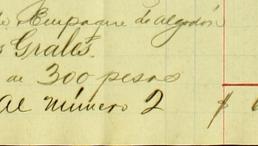 de Empaque de algodón
s Grales.
de 300 pesos
al número 2 $